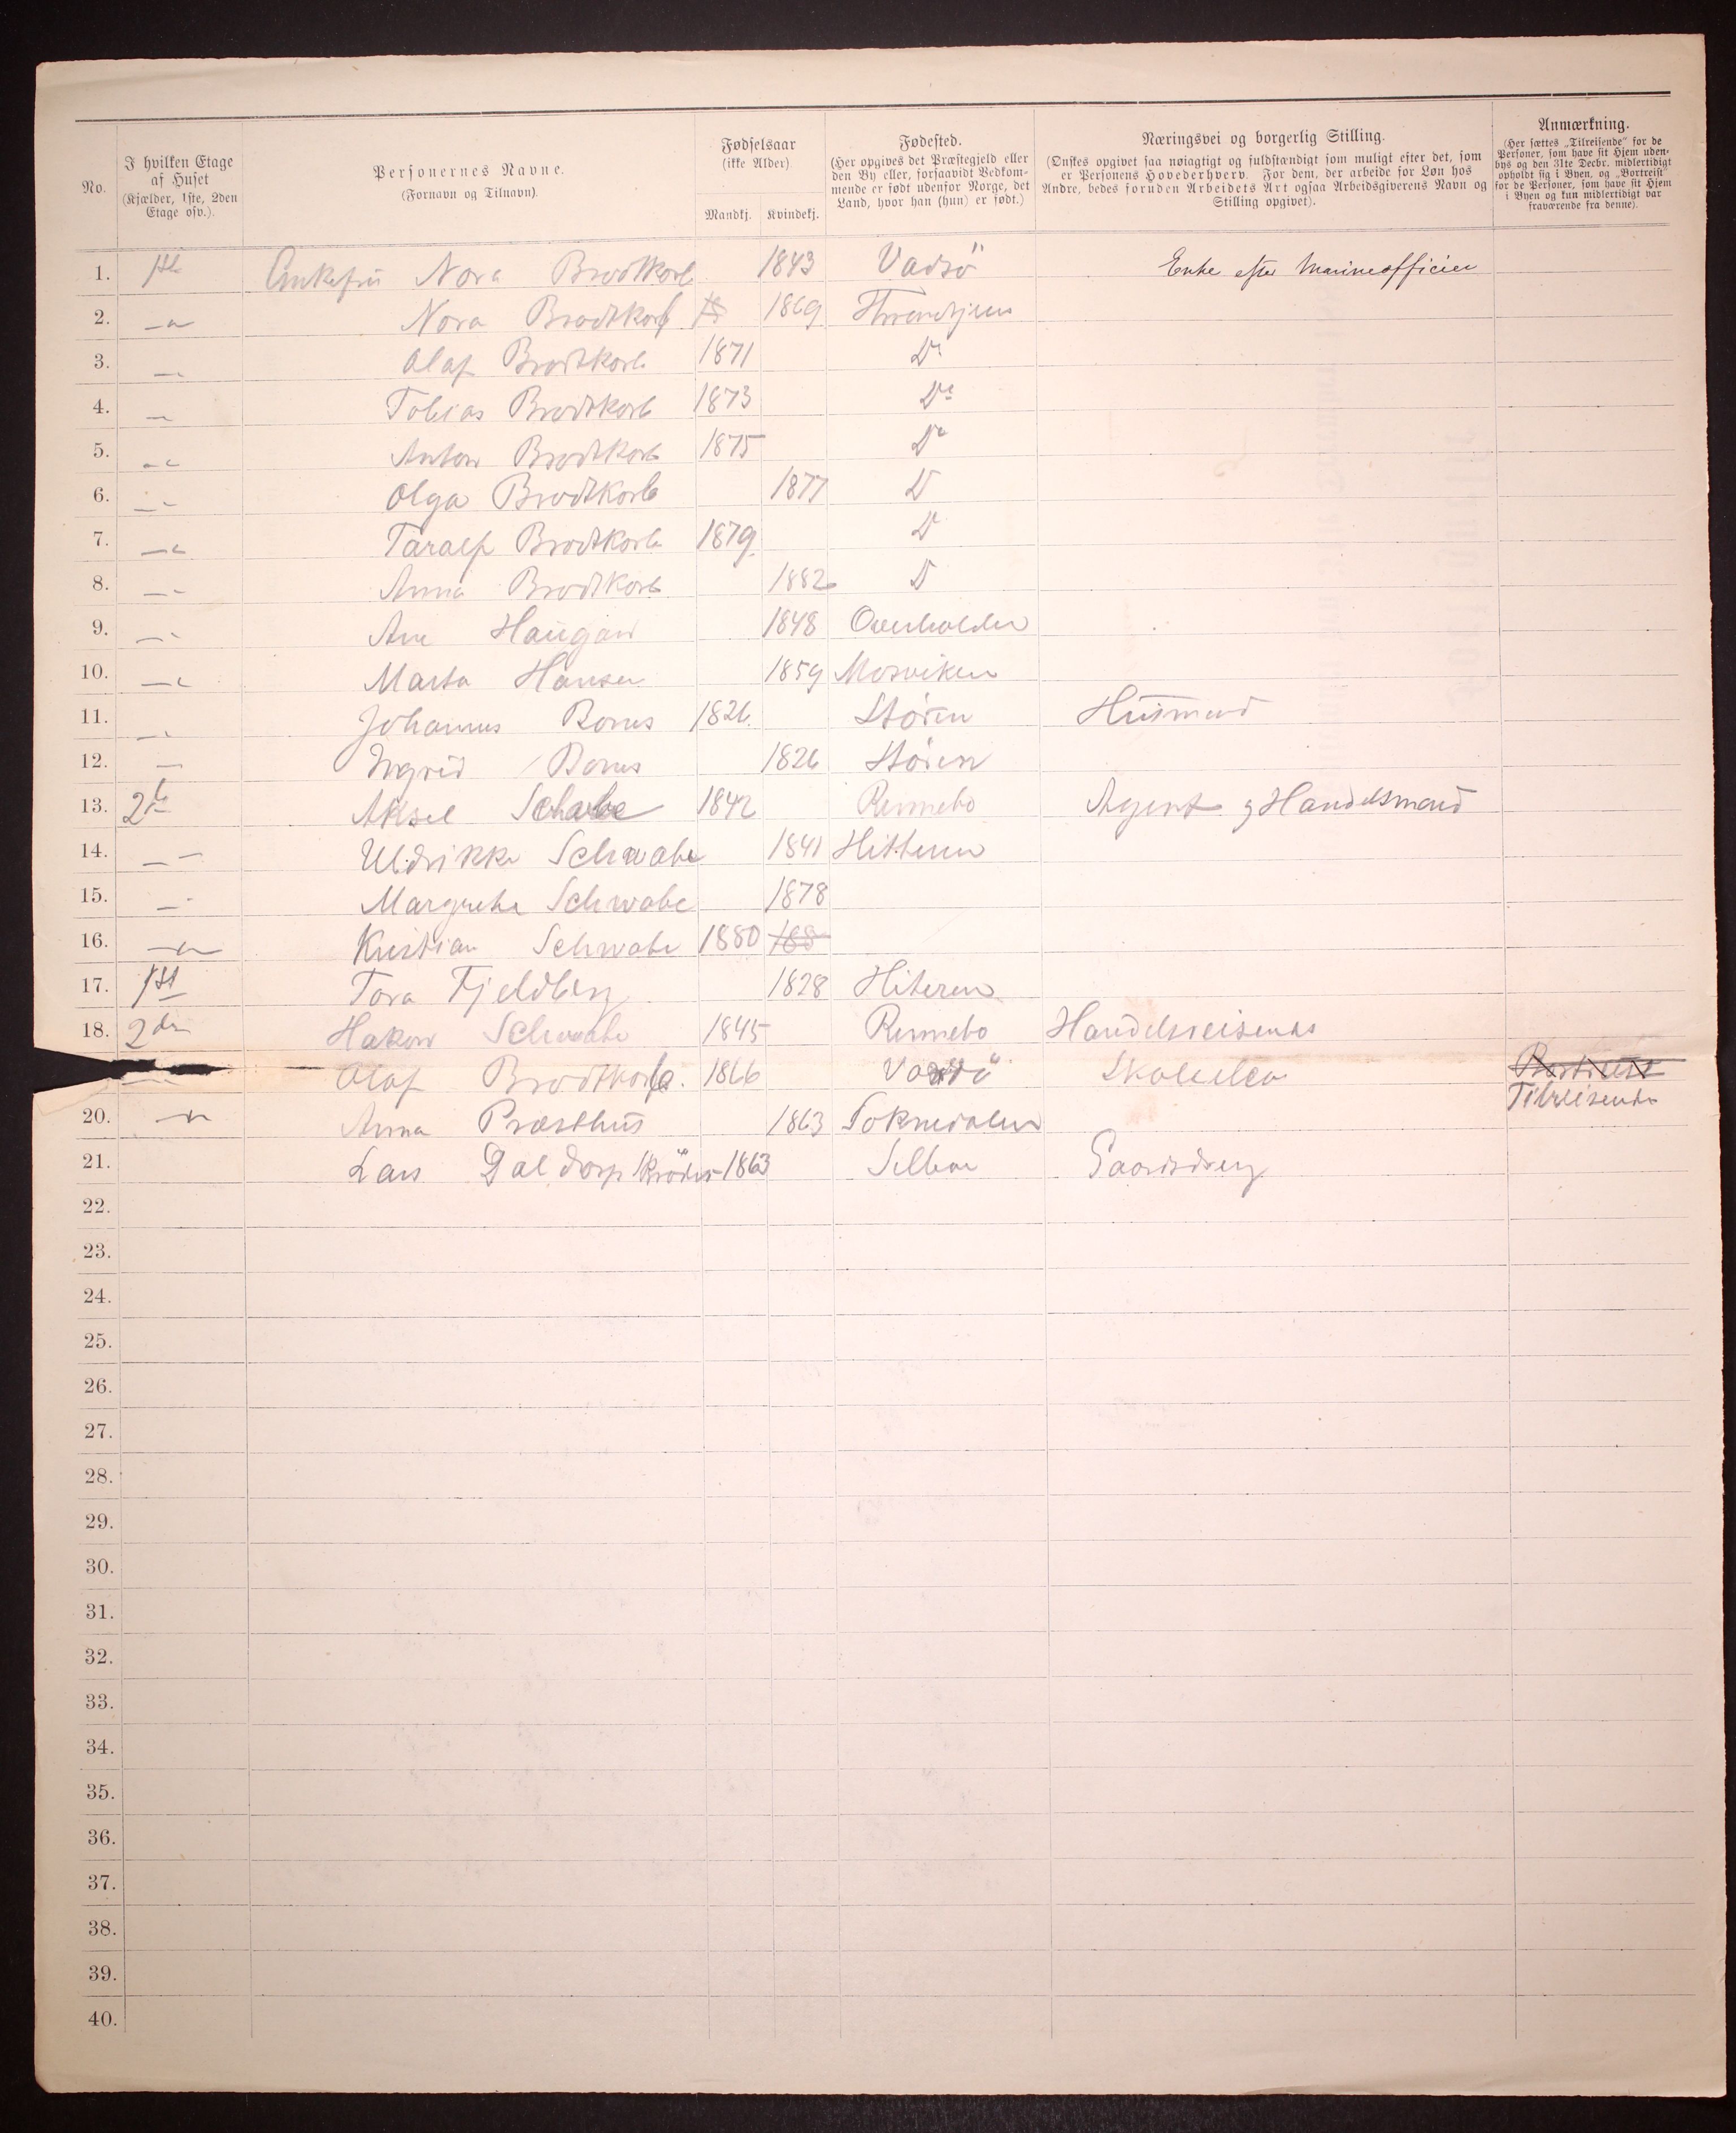 No.
I hvilken Etage
af Huset
(Kjælder, 1ste, 2den
Etage osv.).
Personernes Navne.
(Fornavn og Tilnavn).
Fødselsaar
(ikke Alder)
Mandkj. Kvindekj.
Fødested.
(Her opgives det Præstegjeld eller
den By eller, forsaavidt Vedkom-
mende er født udenfor Norge, det
Land, hvor han (hun) er født.)
Næringsvei og borgerlig Stilling.
(Ønskes opgivet saa nøiagtigt og fuldstændigt som muligt efter det, som
er Personens Hovederhverv. For dem, der arbeide for Løn hos
Andre, bedes foruden Arbeidets Art ogsaa Arbeidsgiverens Navn og
Stilling opgivet).
Anmærkning.
(Her sættes „Tilreisende“ for de
Personer, som have sit Hjem uden-
bys og den 31te Decbr. midlertidigt
opholdt sig i Byen, og „Bortreist“
for de Personer, som have sit Hjem
i Byen og kun midlertidigt var
fraværende fra denne).
1. 1ste Enkefru Nora Brodtkorb 1843 Vadsö Enke efter Marineofficier
2. —"— Nora Brodtkorb 1869 Throndhjem
3. — Olaf Brodtkorb 1871 Do
4. — Tobias Brodtkorb 1873 Do
5. — Anton Brodtkorb 1875 Do
6. — Olga Brodtkorb 1877 D
7. — Taralf Brodtkorb 1879 Do
8. — Anna Brodtkorb 1882 D
9. — Ane Haugan 1848 Overhalden
10. — Marta Hansen 1859 Mosviken
11. — Johannes Bones 1826 Støren Husmand
12. — Ingrid Bones 1826 Støren
13. 2de Aksel Schwabe 1842 Rennebo Agent & Handelsmand
14. — Uldrikke Schwabe 1841 Hitteren
15. — Margrethe Schwabe 1878
16. —"— Kristian Schwabe 1880 188
17. 1ste Tora Fjeldberg 1828 Hiteren
18. 2den Hakon Schwabe 1845 Rennebo Handelsreisende
— Olaf Brodtkorb. 1866 Vadsö Skoleelev Bortreist
Tilreisende
20. —"— Anna Præsthus 1863 Soknedalen
21. Lars Daldorp Kröder 1863 Selbu Gaardsdreng
22.
23.
24.
25.
26.
27.
28.
29.
30.
31.
32.
33.
34.
35.
36.
37.
38.
39.
40.